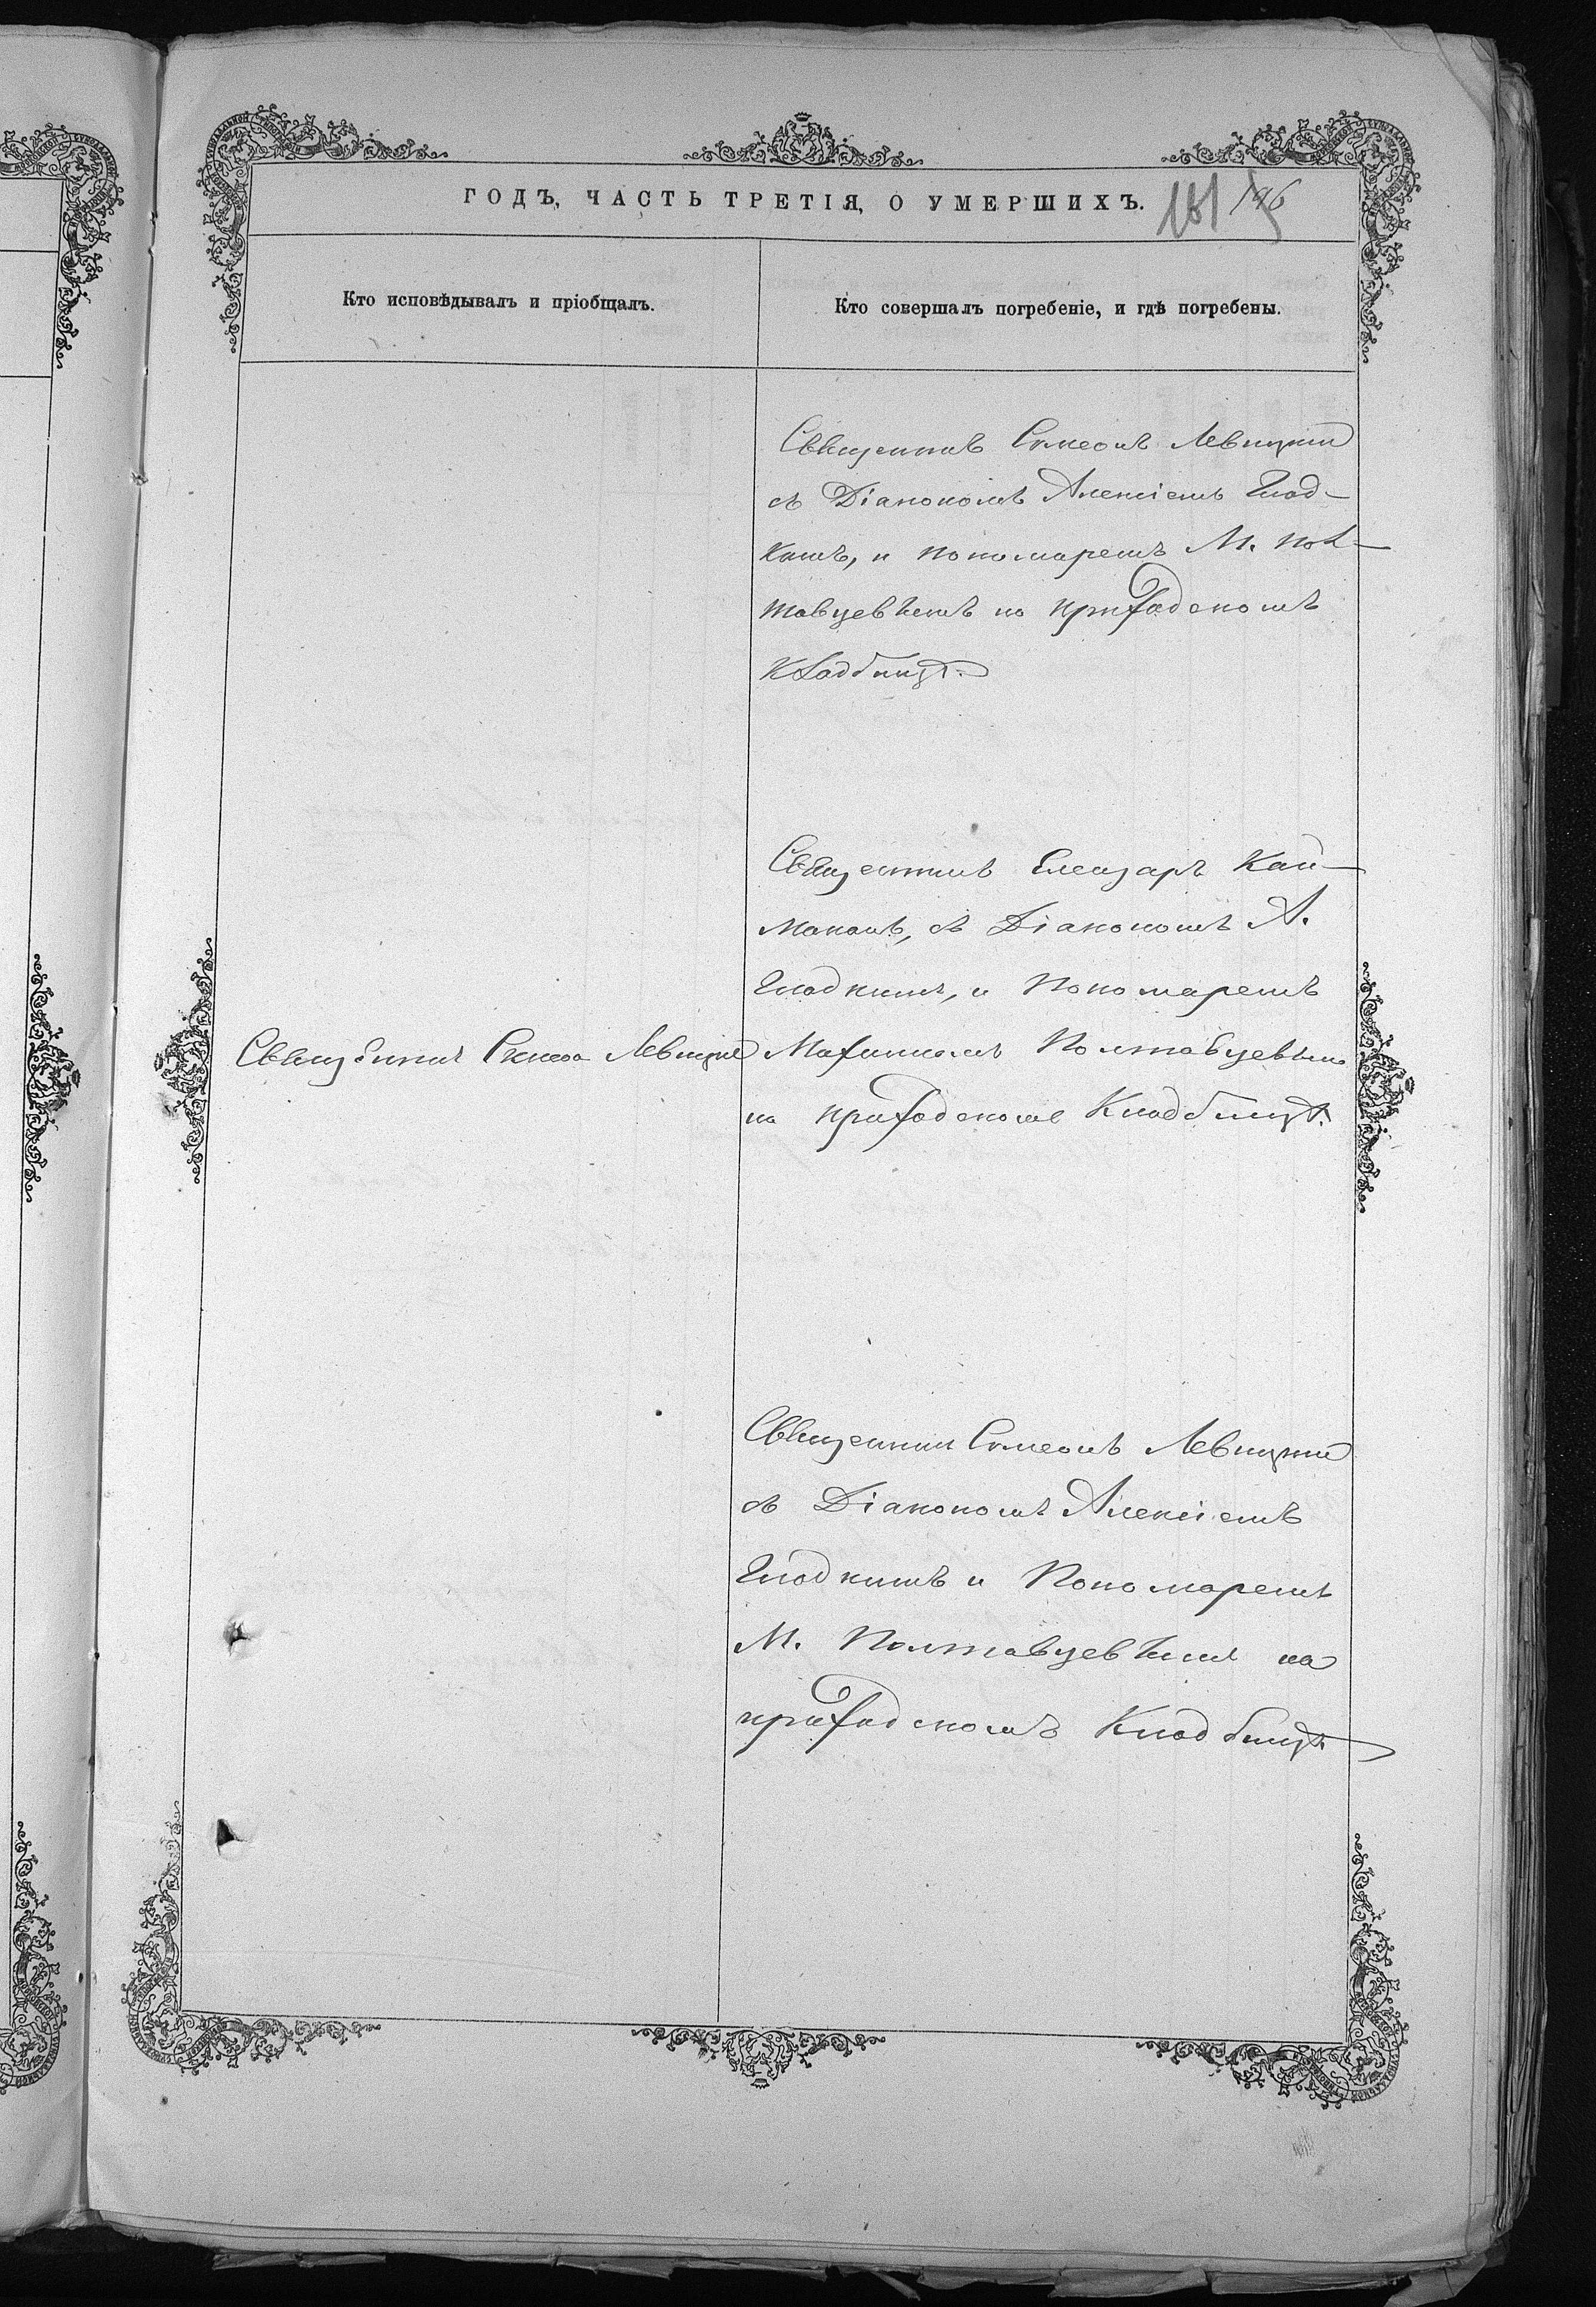 ГОДЪ, ЧАСТЬ ТРЕТІЯ, О УМЕРШИХЪ.
181 196
Кто исповѣдывалъ и пріобщалъ.
Кто совершалъ погребеніе, и гдѣ погребены.
Священникъ Симеонъ Левицкій
съ Діакономъ Алексіемъ Глад-
кимъ, и пономаремъ М. Пол-
тавцевымъ на приходскомъ
кладбищѣ.
Священникъ Елеазаръ Кай-
макан, съ Діакономъ А.
Гладкимъ, и Пономаремъ
Священникъ Симеон Левицкій
Мафиномъ Полтавцевымъ
на приходскомъ Кладбищѣ.
Священникъ Симеонъ Левицкій
съ Діакономъ Алексіемъ
Гладкимъ и Пономаремъ
М. Полтавцевымъ на
приходскомъ Кладбищѣ